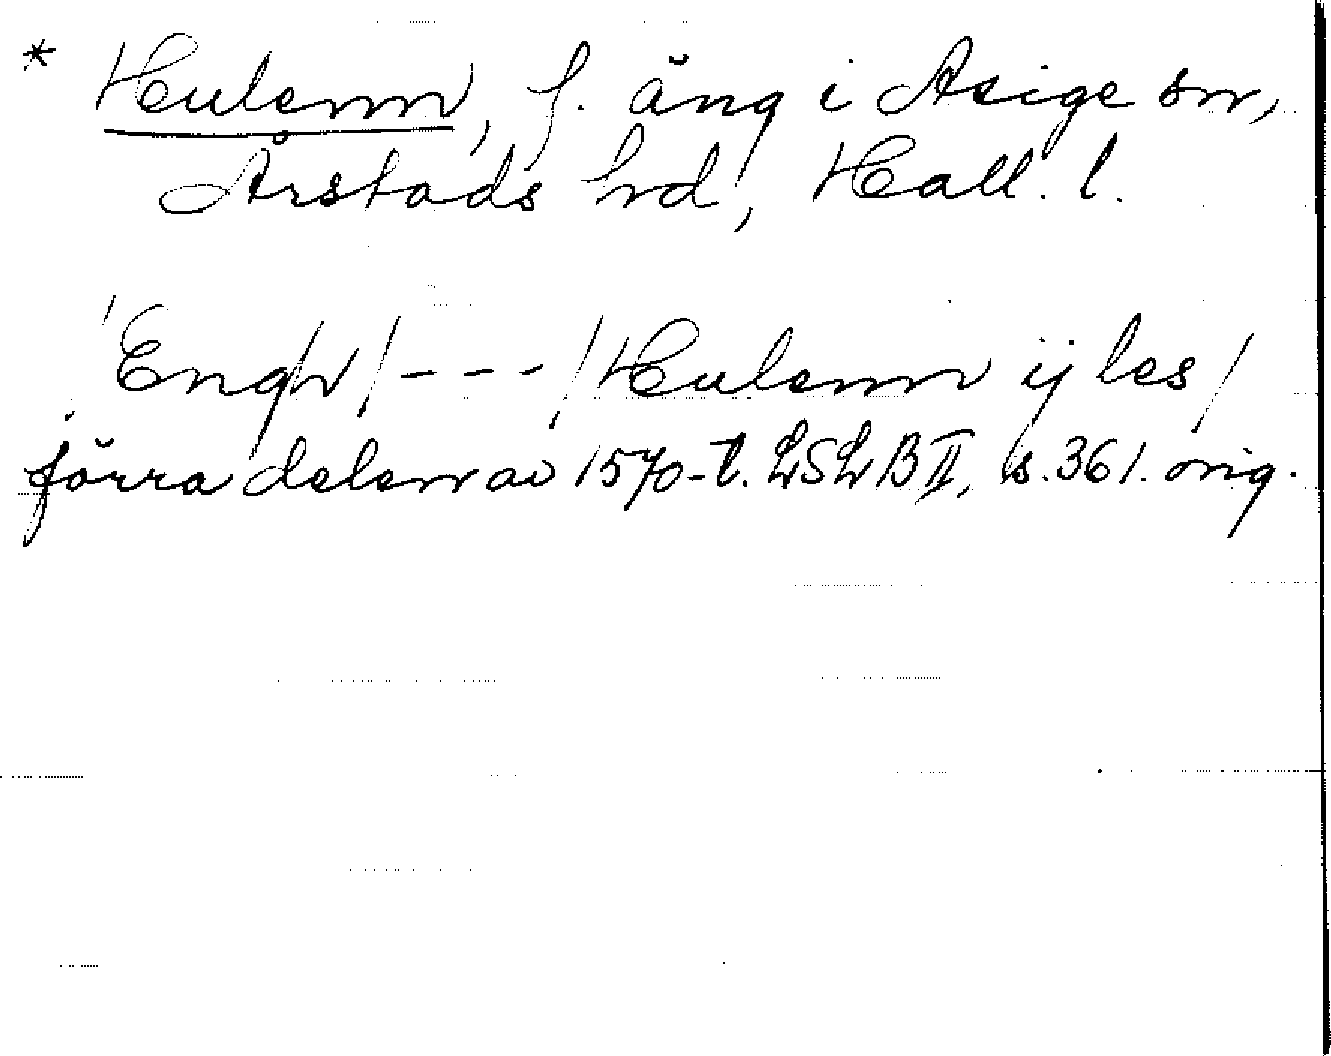 * Hulenn, f. äng i Asige sn,
Årstads hd, Hall. l.
'Engh/ - - - / Hulenn ij les /
förra delen av 1570-t. LSLB II, s. 361. orig.